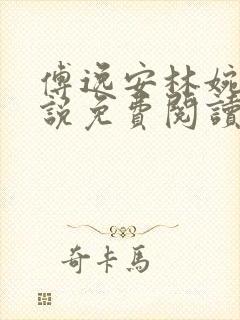 傅逸安林婉
說免費閱讀
奇卡馬